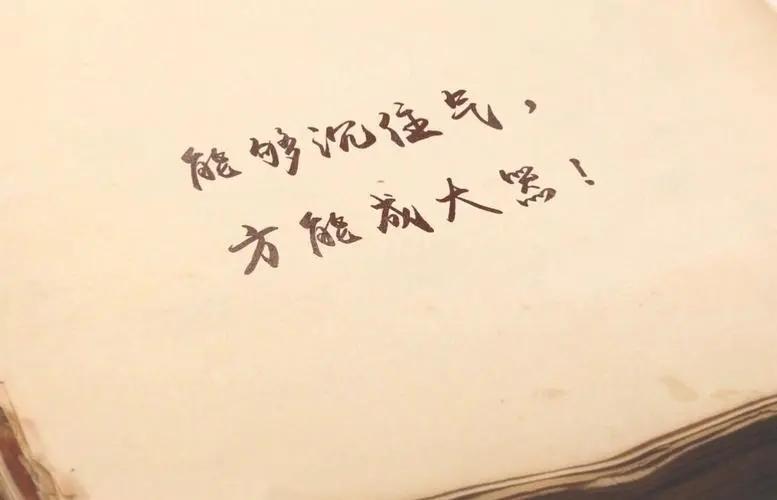 能够沉住气，
方能成大器！